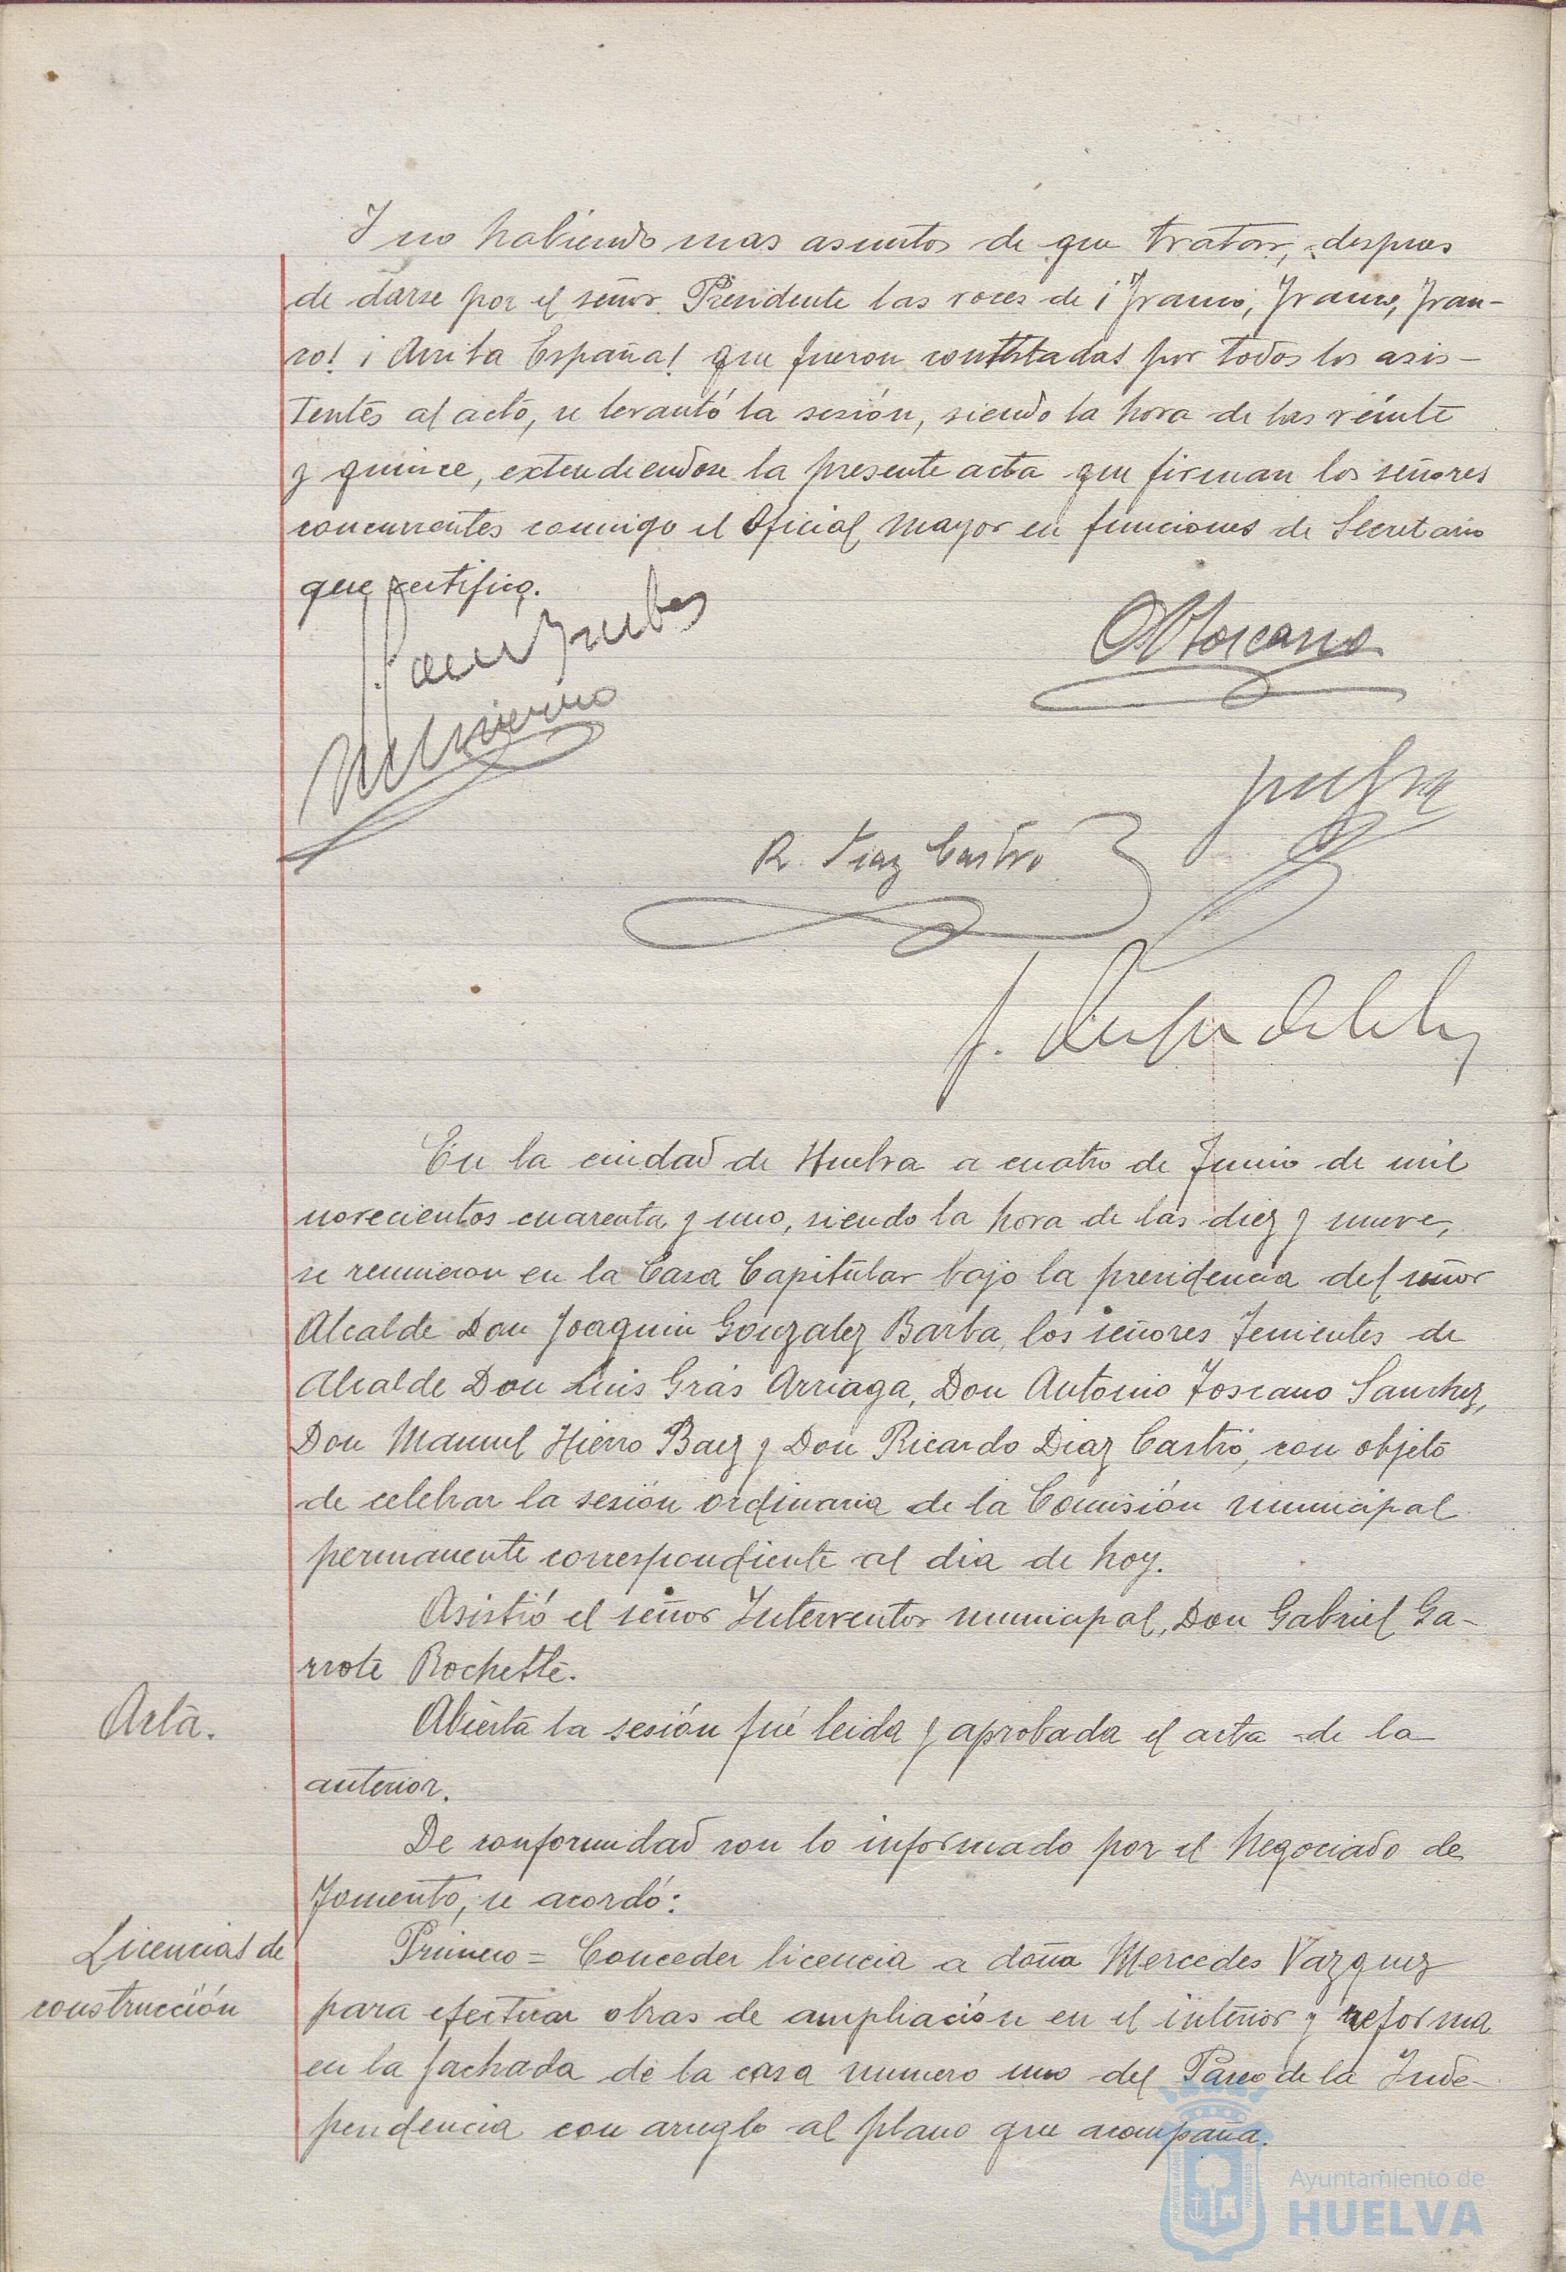 Y no habiendo mas asuntos de que tratar, despues
de darse por el señor Presidente las voces de ¡Franco, Franco, Fran-
co! ¡Arriba España! que fueron contestadas por todos los asis-
tentes al acto, se levantó la sesión, siendo la hora de las veinte
y quince, extendiendose la presente acta que firman los señores
concurrentes conmigo el Oficial Mayor en funciones de Secretario
que certifico.
A Toscano
R. Diaz Castro
En la ciudad de Huelva a cuatro de Junio de mil
novecientos cuarenta y uno, siendo la hora de las diez y nueve,
se reunieron en la Casa Capitular bajo la presidencia del señor
Alcalde Don Joaquin Gonzalez Barba, los señores Tenientes de
Alcalde Don Luis Grás Arriaga, Don Antonio Toscano Sanchez,
Don Manuel Hierro Baez y Don Ricardo Diaz Castro, con objeto
de celebrar la sesión ordinaria de la Comisión municipal
permanente correspondiente al dia de hoy.
Asistió el señor Interventor municipal, Don Gabriel Ga-
rrote Rochette.
Acta.
Abierta la sesión fué leida y aprobada el acta de la
anterior.
De conformidad con lo informado por el Negociado de
Fomento, se acordó:
Licencias de
construcción
Primero = Conceder licencia a doña Mercedes Vazquez
para efectuar obras de ampliación en el interior y reforma
en la fachada de la casa numero uno del Paseo de la Inde-
pendencia con arreglo al plano que acompaña.
Ayuntamiento de
HUELVA